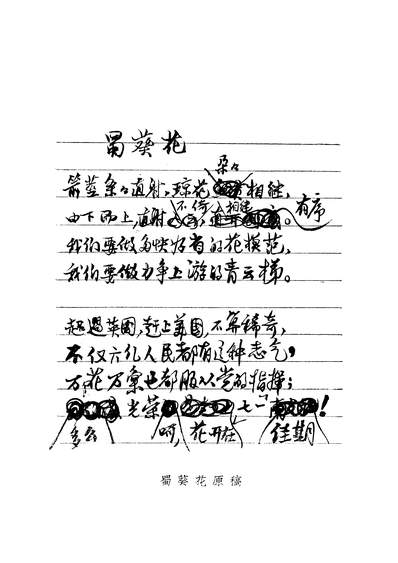 蜀葵花
朵々
箭茎条々直射,琼花相继,
不倚,相继 有序
由下而上,直射。
我们要做多快好省的花模范,
我们要做力争上游的青云梯。
超过英国,赶上美国,不算稀奇,
不仅六亿人民都有这种志气,
万花万葉也都服从党的指挥;
光荣 七一 !
多么 呵,花开在 佳期
蜀葵花原稿